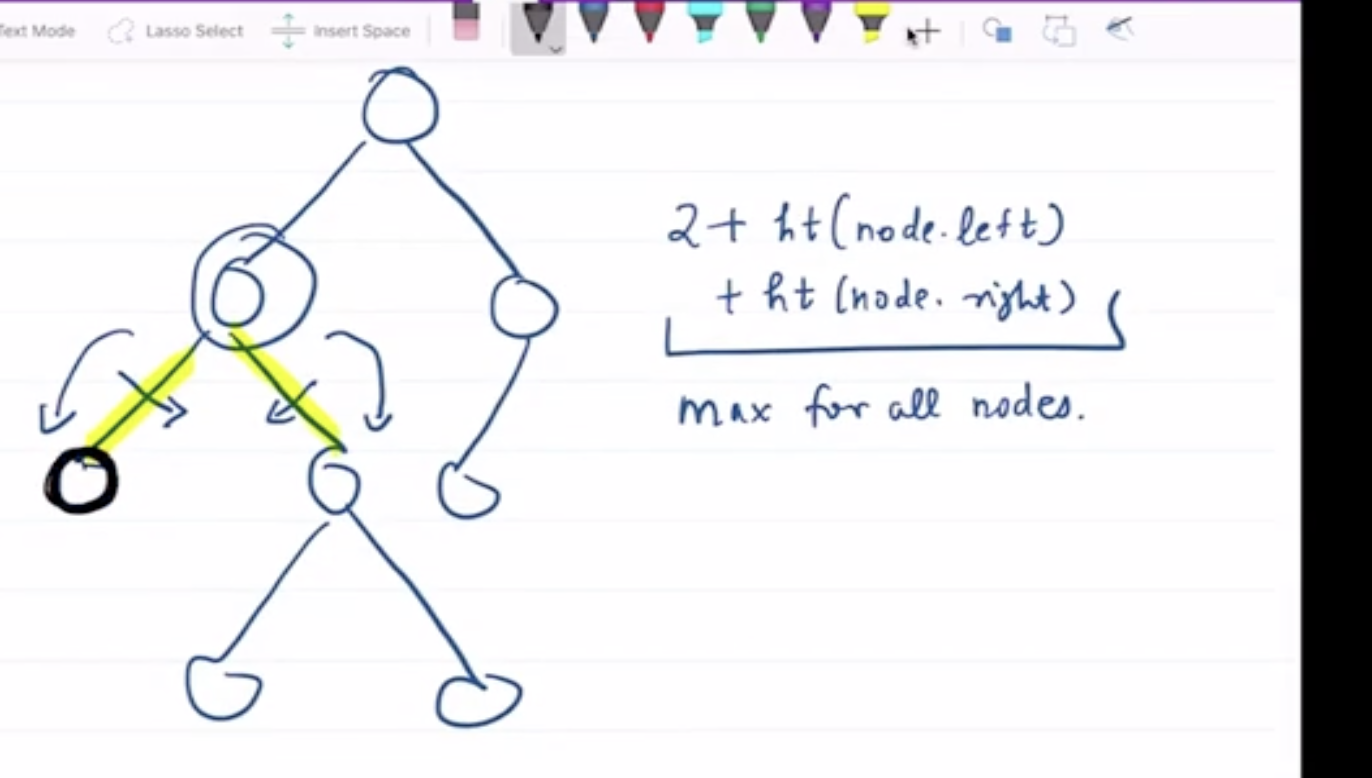 Text Mode
Lasso Select
Insert Space
2 + ht(node.left)
+ ht(node.right)
max for all nodes.